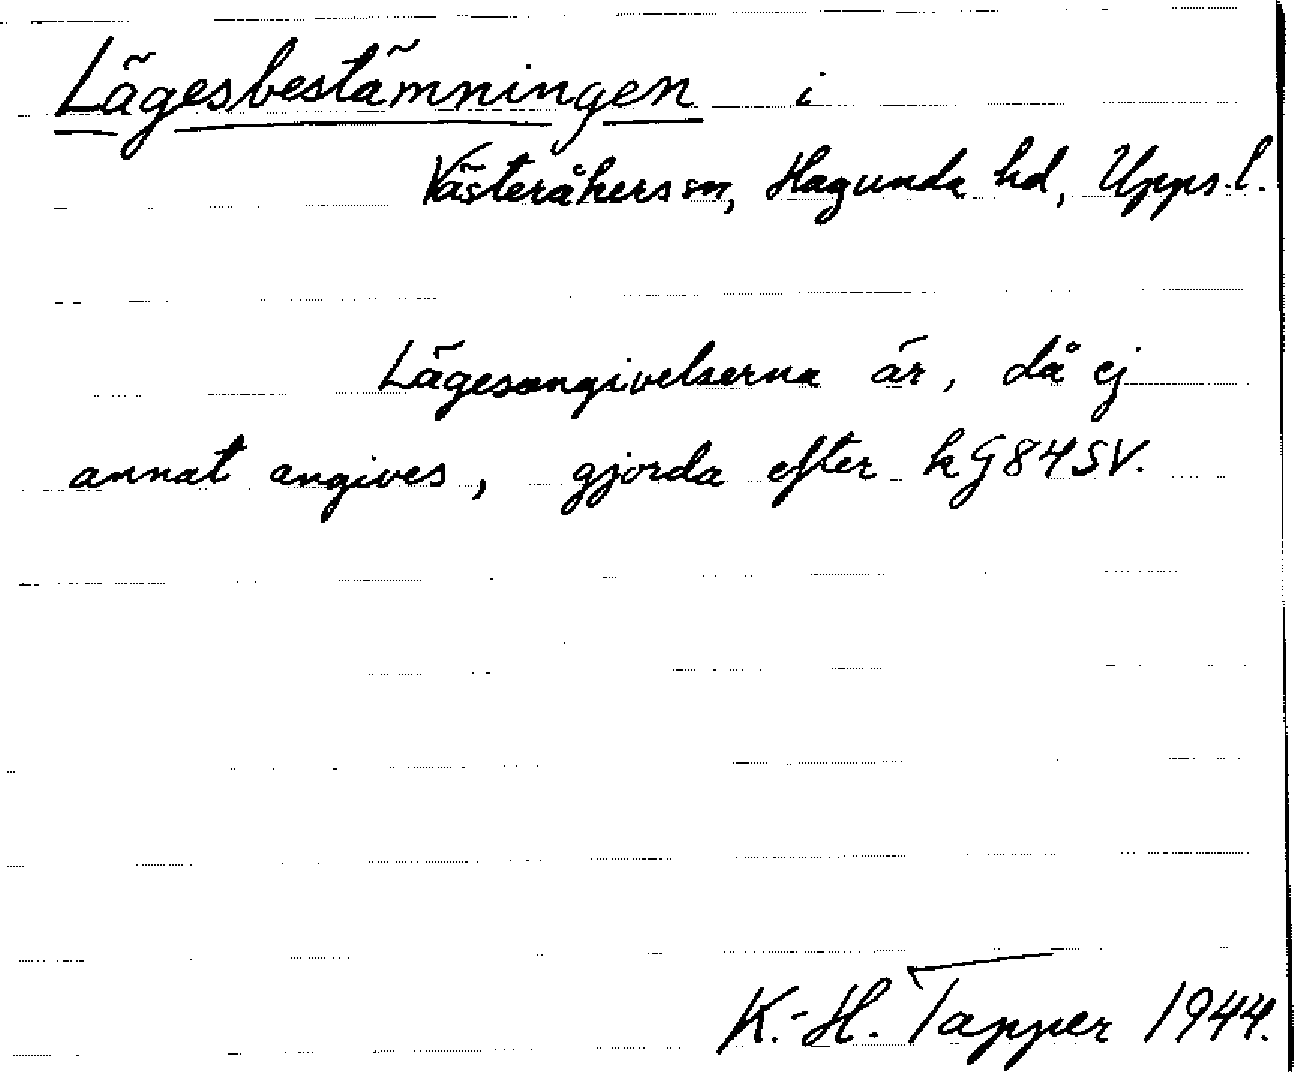 Lägesbestämningen i
Västeråkers sn, Hagunda hd, Upps. l.
Lägesangivelserna är, då ej
annat angives, gjorda efter kG84SV.
K.-H. Tapper 1944.